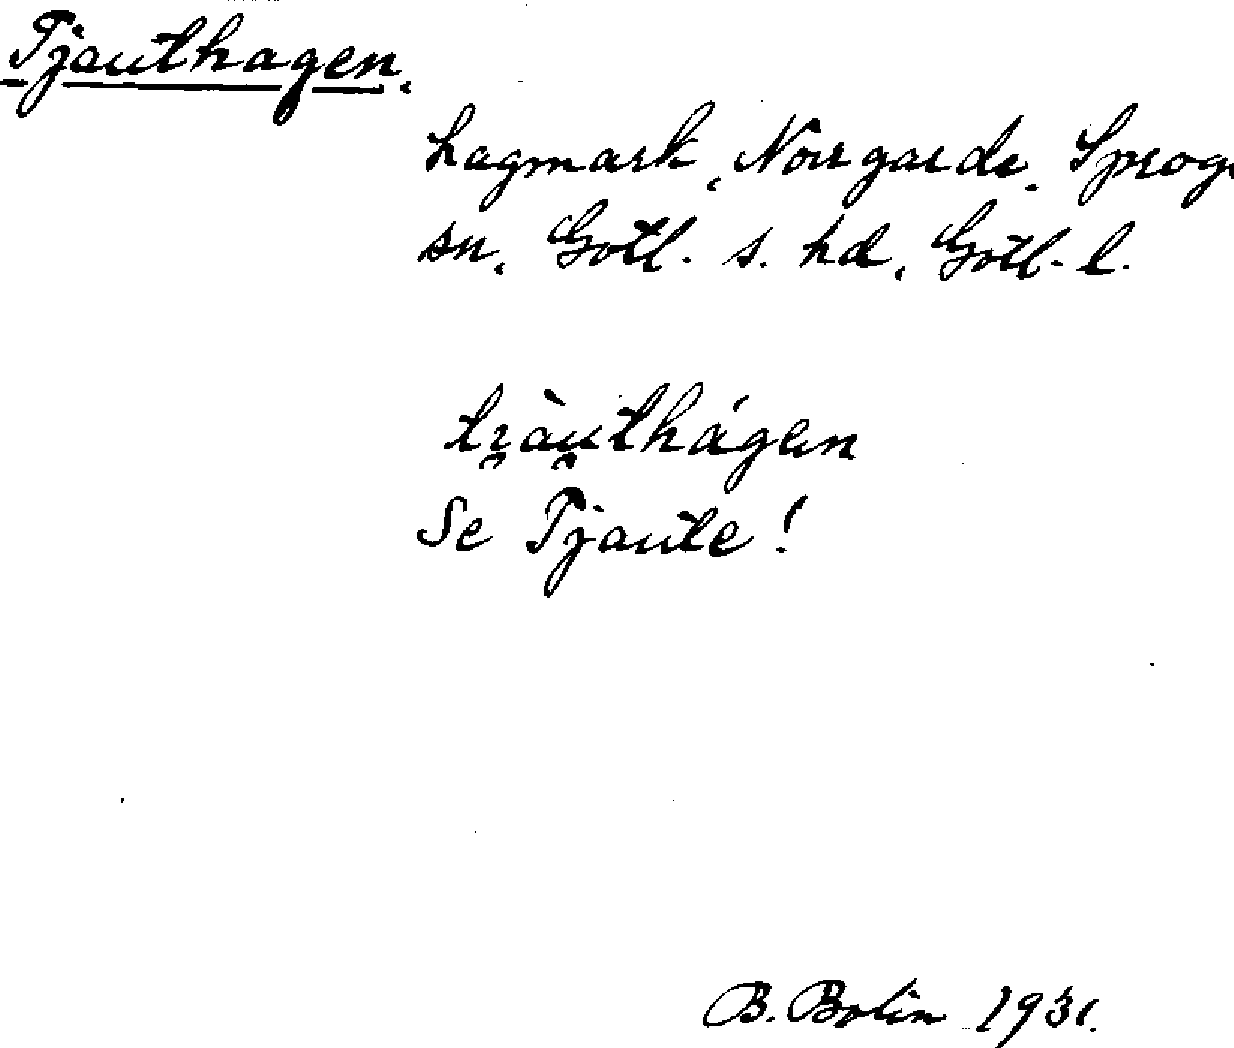 Tjauthagen.
hagmark, Norrgårde, Sproge
sn, Gotl. s. hd, Gotl. l.
tɪ̯àu̯thágen
Se Tjaute!
B. Bolin 1931.